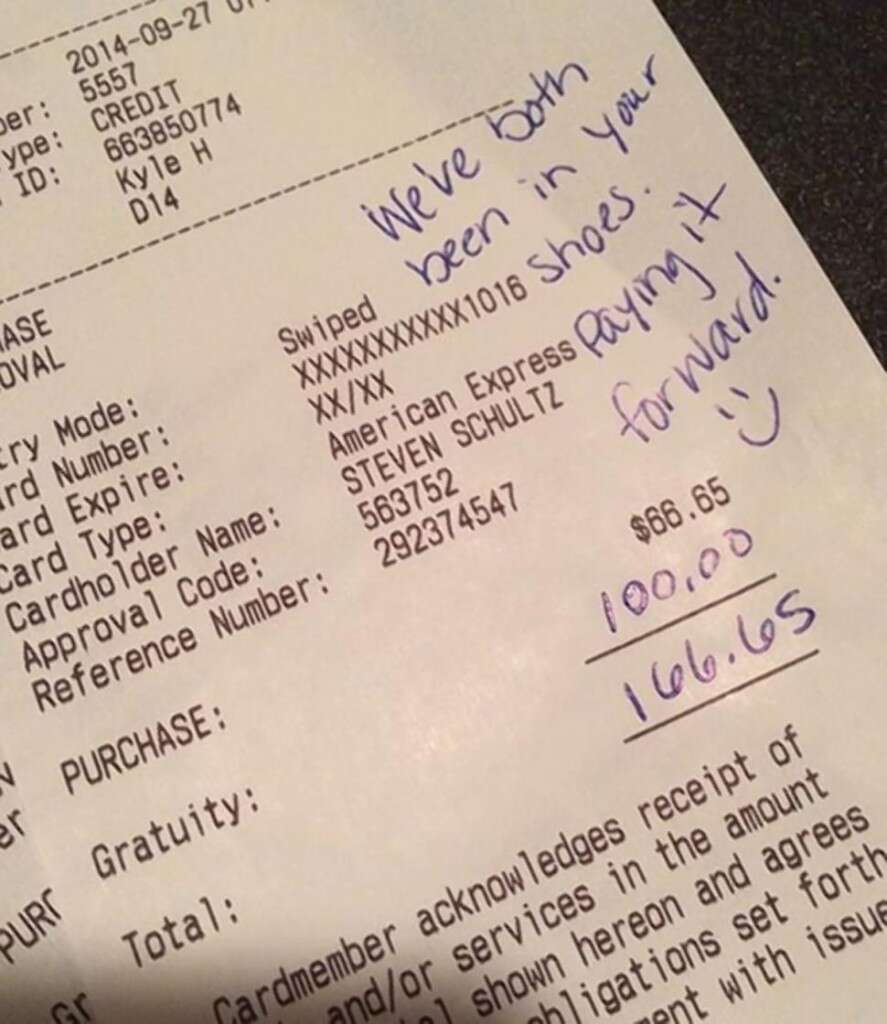 2014-09-27
5557
ype: CREDIT
ID: 663850774
Kyle H
D14
We've both
been in your
shoes.
Paying it
forward.
:)
ASE
OVAL
try Mode: Swiped
rd Number: XXXXXXXXXXX1016
ard Expire: XX/XX
Card Type: American Express
Cardholder Name: STEVEN SCHULTZ
Approval Code: 563752
Reference Number: 292374547
PURCHASE: $66.65
Gratuity: 100.00
Total: 166.65
Cardmember acknowledges receipt of
and/or services in the amount
shown hereon and agrees
obligations set forth
ent with issue
PUR
Gr